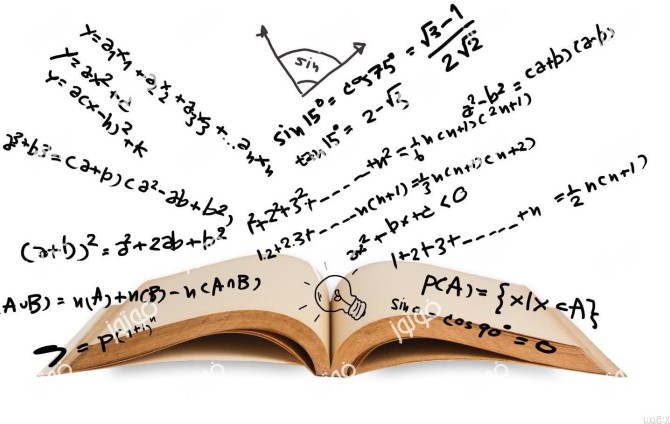 y = a₁x₁ + a₂x₂ + a₃x₃ + ... aₙxₙ
y = ax² + c
y = a(x-h)² + k
sin
sin 15° = cos 75° = √3 - 1 / 2√2
tan 15° = 2 - √3
a² - b² = (a+b)(a-b)
a³ + b³ = (a+b)(a² - ab + b²)
1² + 2² + 3² + ------ + n² = 1/6 n(n+1)(2n+1)
1.2 + 2.3 + ---- n(n+1) = 1/3 n(n+1)(n+2)
ax² + bx + c < 0
1 + 2 + 3 + ------ + n = 1/2 n(n+1)
(a+b)² = a² + 2ab + b²
(A∪B) = n(A) + n(B) - n(A∩B)
P(A) = {x | x ⊂ A}
= cos 90° = 0
= P(1+i)ⁿ